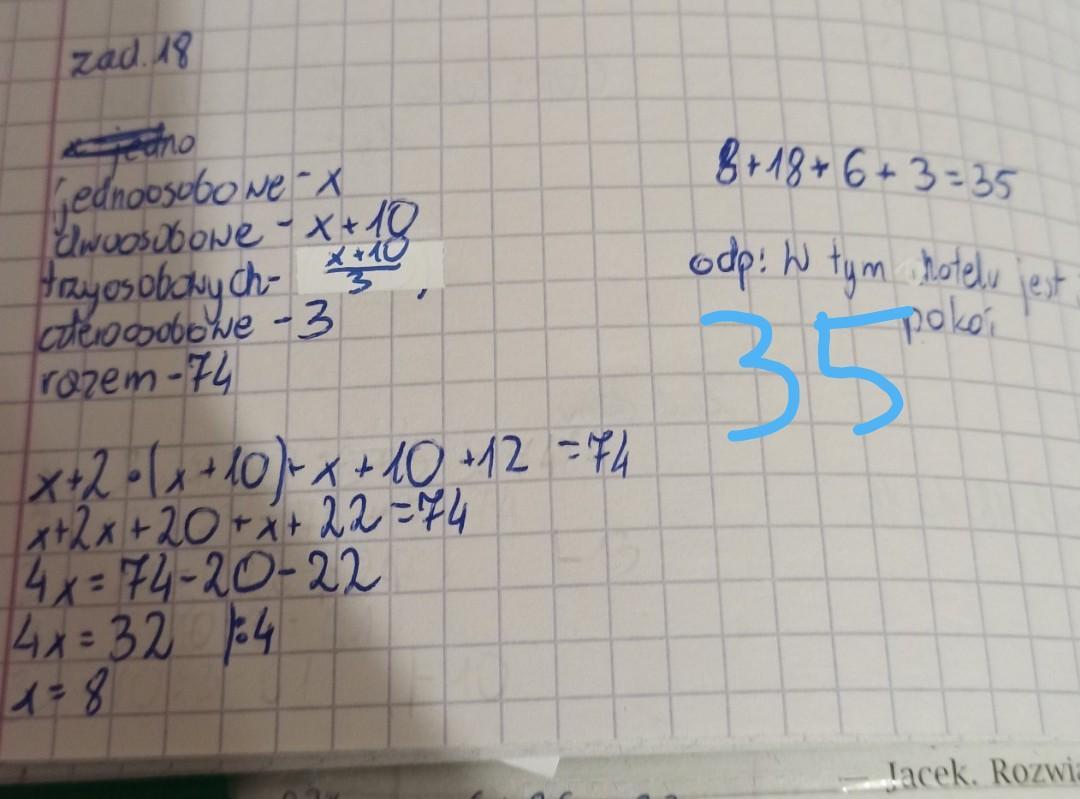 zad.18
jedno
jednoosobowe - x
dwuosobowe - x + 10
trzyosobowych - \frac{x+10}{3}
czteroosobowe - 3
razem - 74
x + 2 · (x + 10) + x + 10 + 12 = 74
x + 2x + 20 + x + 22 = 74
4x = 74 - 20 - 22
4x = 32 |:4
x = 8
8 + 18 + 6 + 3 = 35
odp: W tym hotelu jest
35 pokoi
— Jacek. Rozwią